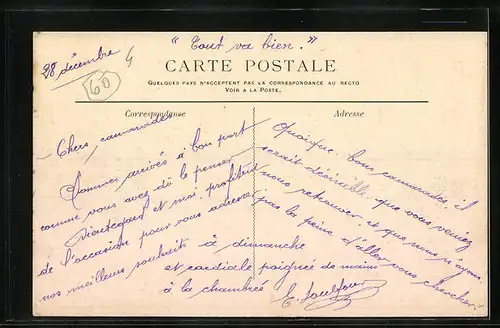 28 décembre
"Tout va bien."
4
60
CARTE POSTALE
QUELQUES PAYS N'ACCEPTENT PAS LA CORRESPONDANCE AU RECTO
VOIR A LA POSTE.
Correspondance
Adresse
Chers camarades
Sommes arrivés à bon port
comme vous avez dû le penser
et moi profitons
de l'occasion pour vous adresser
nos meilleurs souhaits à dimanche
et cordiale poignée de mains
à la chambrée
Quoique bons camarades il
serait désirable que vous veniez
nous retrouver et que nous n'ayons
pas la peine d'aller vous chercher!
E.